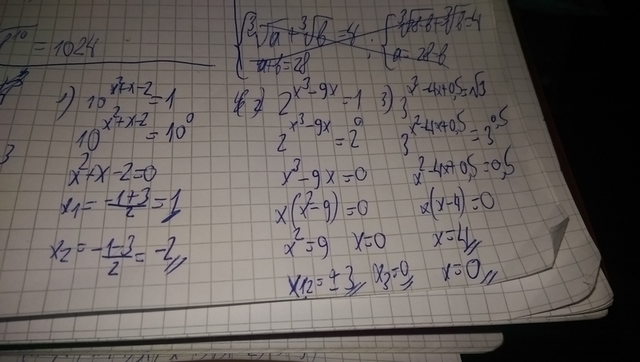 = 1024
∛a + ∛b = 4
a+b=28
∛28-b + ∛b = 4
a=28-b
1) 10^x²+x-2 = 1
10^x²+x-2 = 10⁰
x²+x-2=0
x1 = -1+3/2 = 1
x2 = -1-3/2 = -2
2) 2^x³-9x = 1
2^x³-9x = 2⁰
x³-9x=0
x(x²-9)=0
x²=9 x=0
x1,2=±3 x3=0
3) 3^x²-4x+0,5 = √3
3^x²-4x+0,5 = 3^0,5
x²-4x+0,5=0,5
x(x-4)=0
x=4
x=0